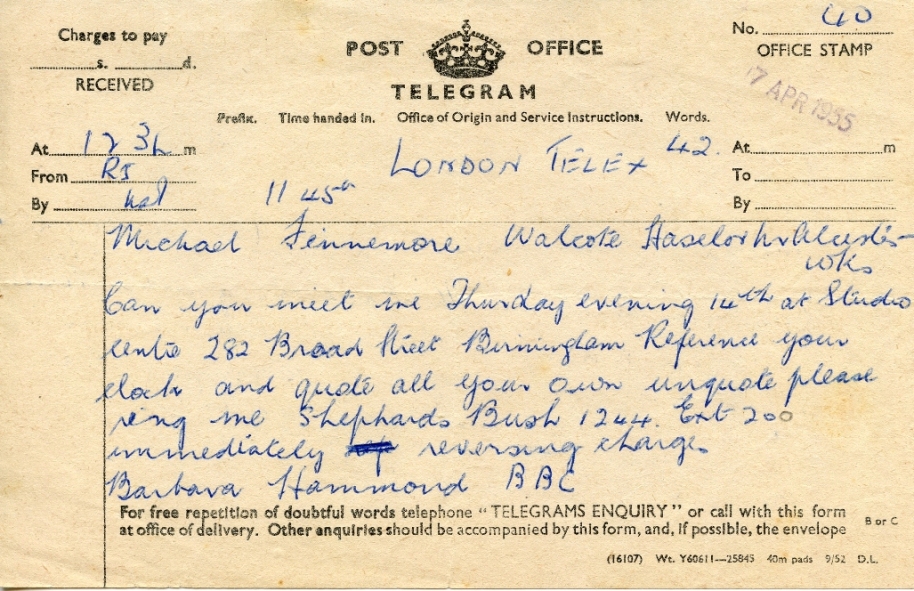 Charges to pay
s. d.
RECEIVED
POST OFFICE
TELEGRAM
No. 40
OFFICE STAMP
7 APR 1955
Prefix. Time handed in. Office of Origin and Service Instructions. Words.
At 12 3 m
From RS
By
11 45
LONDON TELEX 42
At m
To
By
Michael Finnemore Walcote Haselor
Wks
Can you meet me Thursday evening 14th at Studio
282 Broad Street Birmingham Reference your
clock and quote all your own unquote please
ring me Shephards Bush 1244. Ext 200
immediately reversing charges
Barbara Hammond BBC
For free repetition of doubtful words telephone "TELEGRAMS ENQUIRY" or call with this form
at office of delivery. Other enquiries should be accompanied by this form, and, if possible, the envelope
B or C
(16107) Wt. Y60611—25845 40m pads 9/52 D.L.